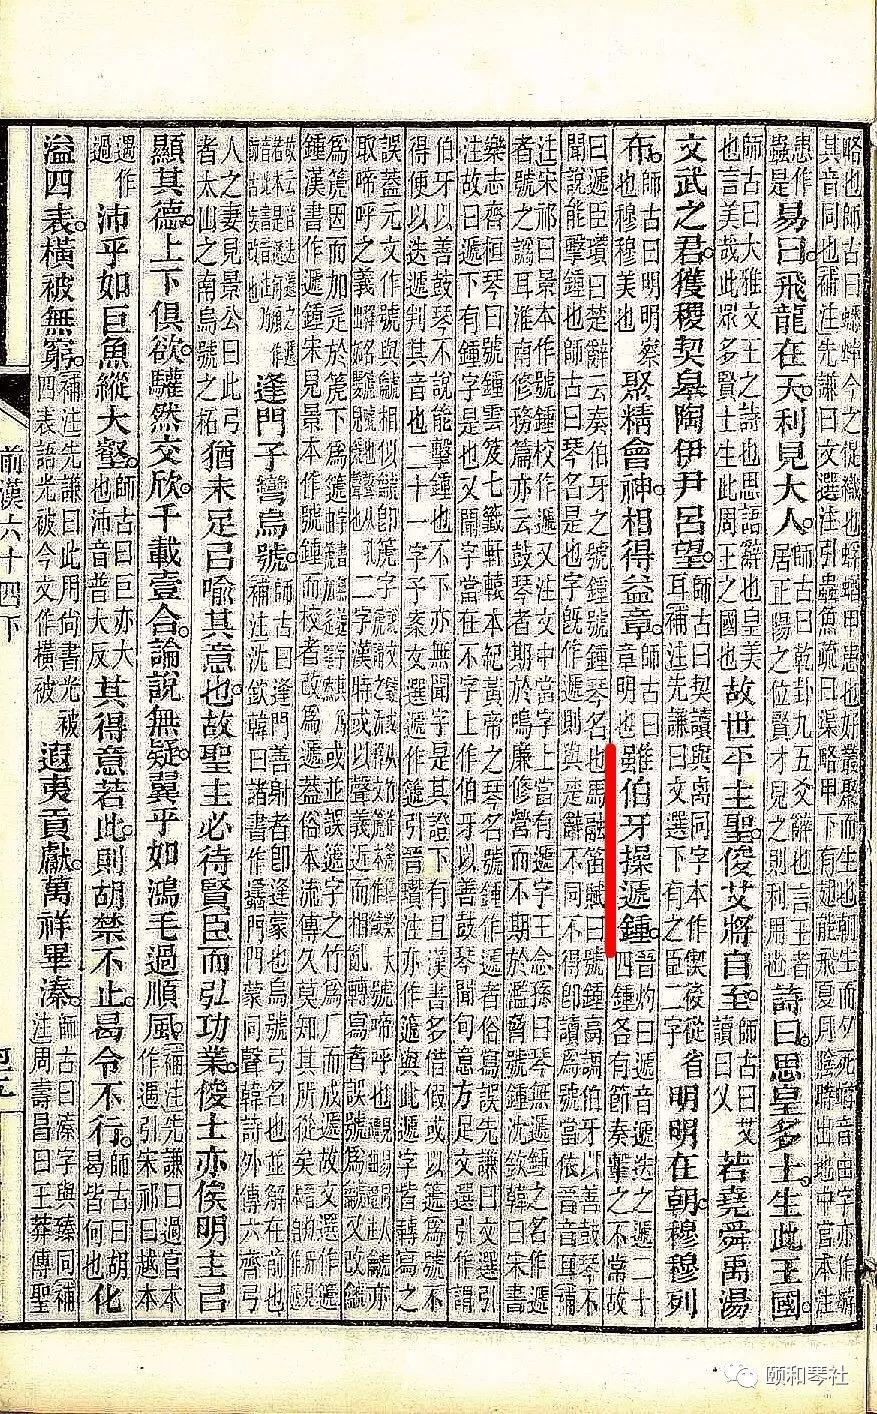 略也師古曰蟋蟀今之促織也蜉蝣甲蟲也好叢聚而生也朝生而夕死蝣音由字亦作蝣
其音同也補注先謙曰文選注引蟲魚疏曰渠略甲下有翅能飛夏月陰時出地中官本注
患作蟲是易曰飛龍在天利見大人師古曰乾卦九五爻辭也言王者居正陽之位賢才見之則利用也詩曰思皇多士生此王國
師古曰大雅文王之詩也思語辭也皇美也言美哉此眾多賢士生此周王之國也故世平主聖俊艾將自至師古曰艾讀曰乂若堯舜禹湯
文武之君獲稷契皋陶伊尹呂望師古曰契讀與卨同字本作偰後從省耳補注先謙曰文選下有之臣二字明明在朝穆穆列
布師古曰明明察也穆穆美也聚精會神相得益章師古曰章明也雖伯牙操遞鍾晉灼曰遞音遞迭之遞二十四鍾各有節奏擊之不常故
曰遞臣瓚曰楚辭云奏伯牙之號鍾號鍾琴名也馬融笛賦曰號鍾高調伯牙以善鼓琴不
聞說能擊鍾也師古曰琴名是也字既作遞則與楚辭不同不得卽讀為號當依晉音耳補
注宋祁曰景本作號鍾校作遞又注文中當字上當有遞字王念孫曰琴無遞鍾之名作遞
者號之譌耳淮南修務篇亦云鼓琴者期於鳴廉修營而不期於濫脅號鍾沈欽韓曰宋書
樂志齊桓琴曰號鍾雲笈七籤軒轅本紀黃帝之琴名號鍾作遞者俗寫誤先謙曰文選引
注故曰遞下有鍾字是也又聞字當在不字上作伯牙以善鼓琴聞句意方足文選引作謂
伯牙以善鼓琴不說能擊鍾也不下亦無聞字是其證下有且漢書多借假或以為號不
得便以迭遞判其音也二十一字予案文選遞作引晉瓚注亦作與此遞字皆轉寫之
誤蓋元文作號與相似卽箎字號啼呼也亦
取啼呼之義二字漢時或以聲義近而相亂轉寫者誤號為又改
為箎因而加辵於箎下為或並誤遞字之竹為厂而成遞故文選作遞
鍾漢書作遞鍾宋見景本作號鍾而校者改為遞蓋俗本流傳久莫知其所從矣
逢門子彎烏號師古曰逢門善射者卽逢蒙也烏號弓名也並解在前也補注沈欽韓曰諸書作逢門門蒙同聲韓詩外傳六齊弓
人之妻見景公曰此弓者太山之南烏號之柘猶未足㠯喻其意也故聖主必待賢臣而弘功業俊士亦俟明主㠯
顯其德上下俱欲驩然交欣千載壹合論說無疑翼乎如鴻毛過順風補注先謙曰過官本作遇引宋祁曰越本
遇作過沛乎如巨魚縱大壑師古曰巨亦大也沛音普大反其得意若此則胡禁不止曷令不行師古曰胡曷皆何也化
溢四表橫被無窮補注先謙曰此用尚書光被四表語光被今文作橫被遐夷貢獻萬祥畢溱師古曰溱字與臻同補注周壽昌曰王莽傳聖
前漢六十四下
頤和琴社